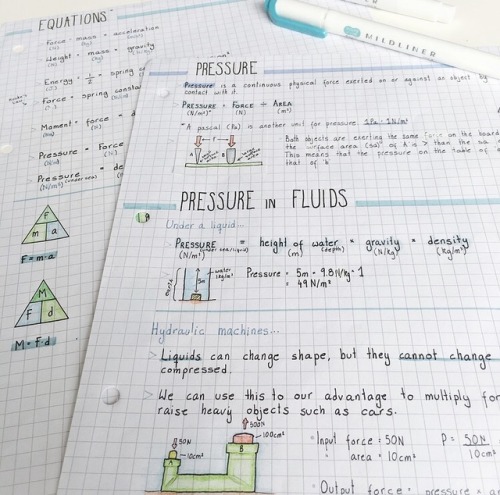 EQUATIONS
Force = mass × acceleration
(N) (kg)
Weight = mass × gravity
(N) (kg)
Energy = 1/2 × spring
Force = spring
Moment = force ×
Pressure = Force
(N/m²) (N)
Pressure (under sea) =
(N/m²)
F
m a
F = m·a
M
F d
M = F·d
MILDLINER
PRESSURE
Pressure is a continuous physical force exerted on or against an object by
contact with it.
PRESSURE = FORCE ÷ AREA
(N/m²) (N) (m²)
*A pascal (Pa) is another unit for pressure. 1Pa = 1N/m²
F
A B
Both objects are exerting the same force on the board
the surface area (sa) of A is > than the sa
This means that the pressure on the table of
that of b
PRESSURE IN FLUIDS
Under a liquid...
PRESSURE (under sea/liquid) = height of water (depth) × gravity × density
(N/m²) (m) (N/kg) (kg/m³)
5m
water
Pressure = 5m × 9.8N/kg × 1
= 49N/m²
Hydraulic machines...
> Liquids can change shape, but they cannot change
compressed.
> We can use this to our advantage to multiply
raise heavy objects such as cars.
50N
10cm²
A
500N
100cm²
B
Input force = 50N
area = 10cm²
P = 50N
10cm²
Output force = pressure ×